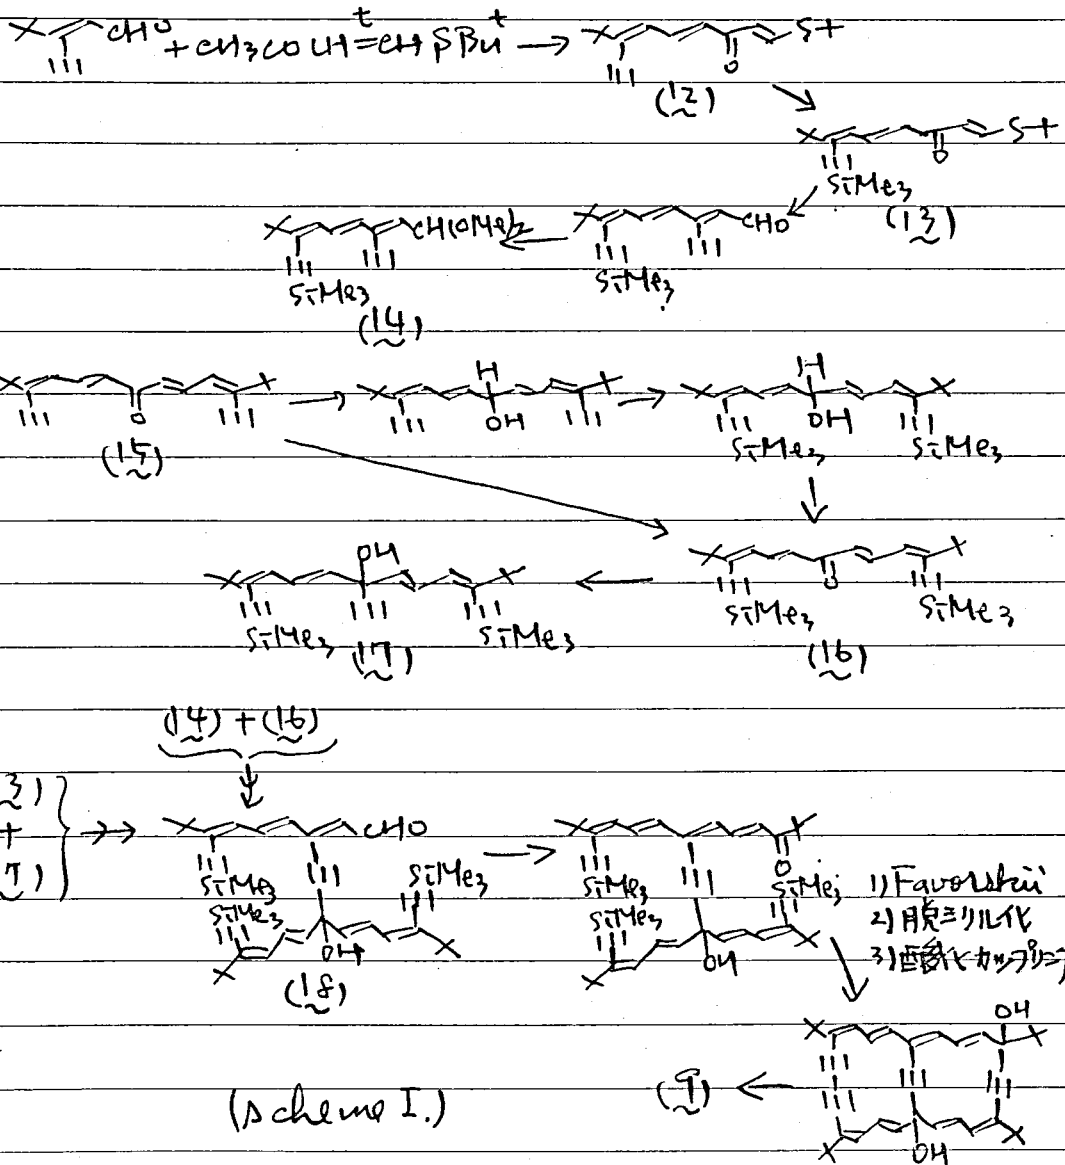 CHO + CH3COCH=CHSBu^t → S
t
O
(12)
S
O
SiMe3
(13)
CHO
SiMe3
CH(OMe)2
SiMe3
(14)
O
(15)
H
OH
H
OH
SiMe3
SiMe3
O
SiMe3
SiMe3
(16)
OH
SiMe3
SiMe3
(17)
(14) + (16)
3)
+
7)
CHO
SiMe3
SiMe3
SiMe3
OH
(18)
O
SiMe3
SiMe3
SiMe3
OH
1) Favorskii
2) 脱シリル化
3) 酸化カップリング
OH
OH
(9)
(Scheme I.)